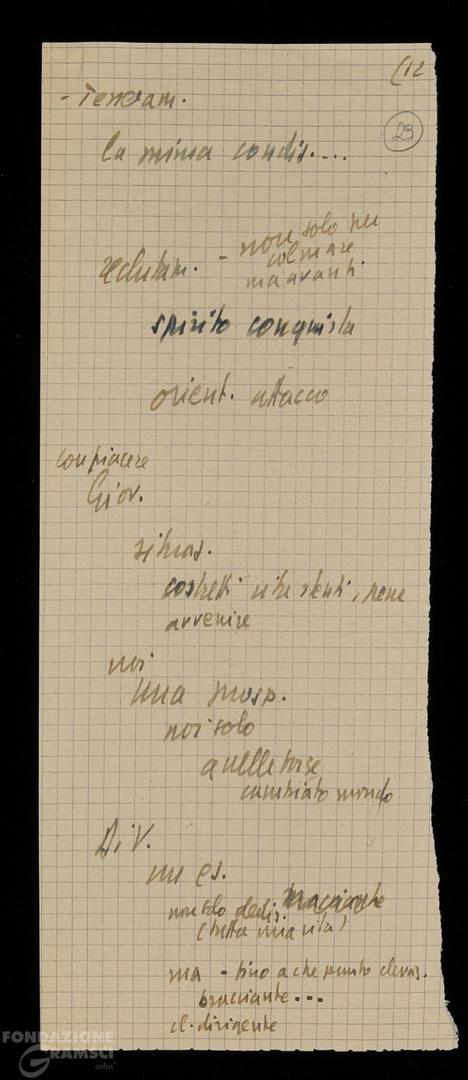 (12
23
- Tesseram.
la mima condis....
reclutam. - non solo per
colmare
ma avanti.
spirito conquista
orient. attacco
con piacere
Giov.
situas.
costretti vite stenti, pene
avvenire
noi
una prosp.
noi solo
quelle forze
cambiato mondo
Di V.
un es.
non solo dedis. bracciante
(tutta mia vita)
ma - fino a che punto elevas.
bracciante...
a. dirigente
FONDAZIONE
GRAMSCI
onlus